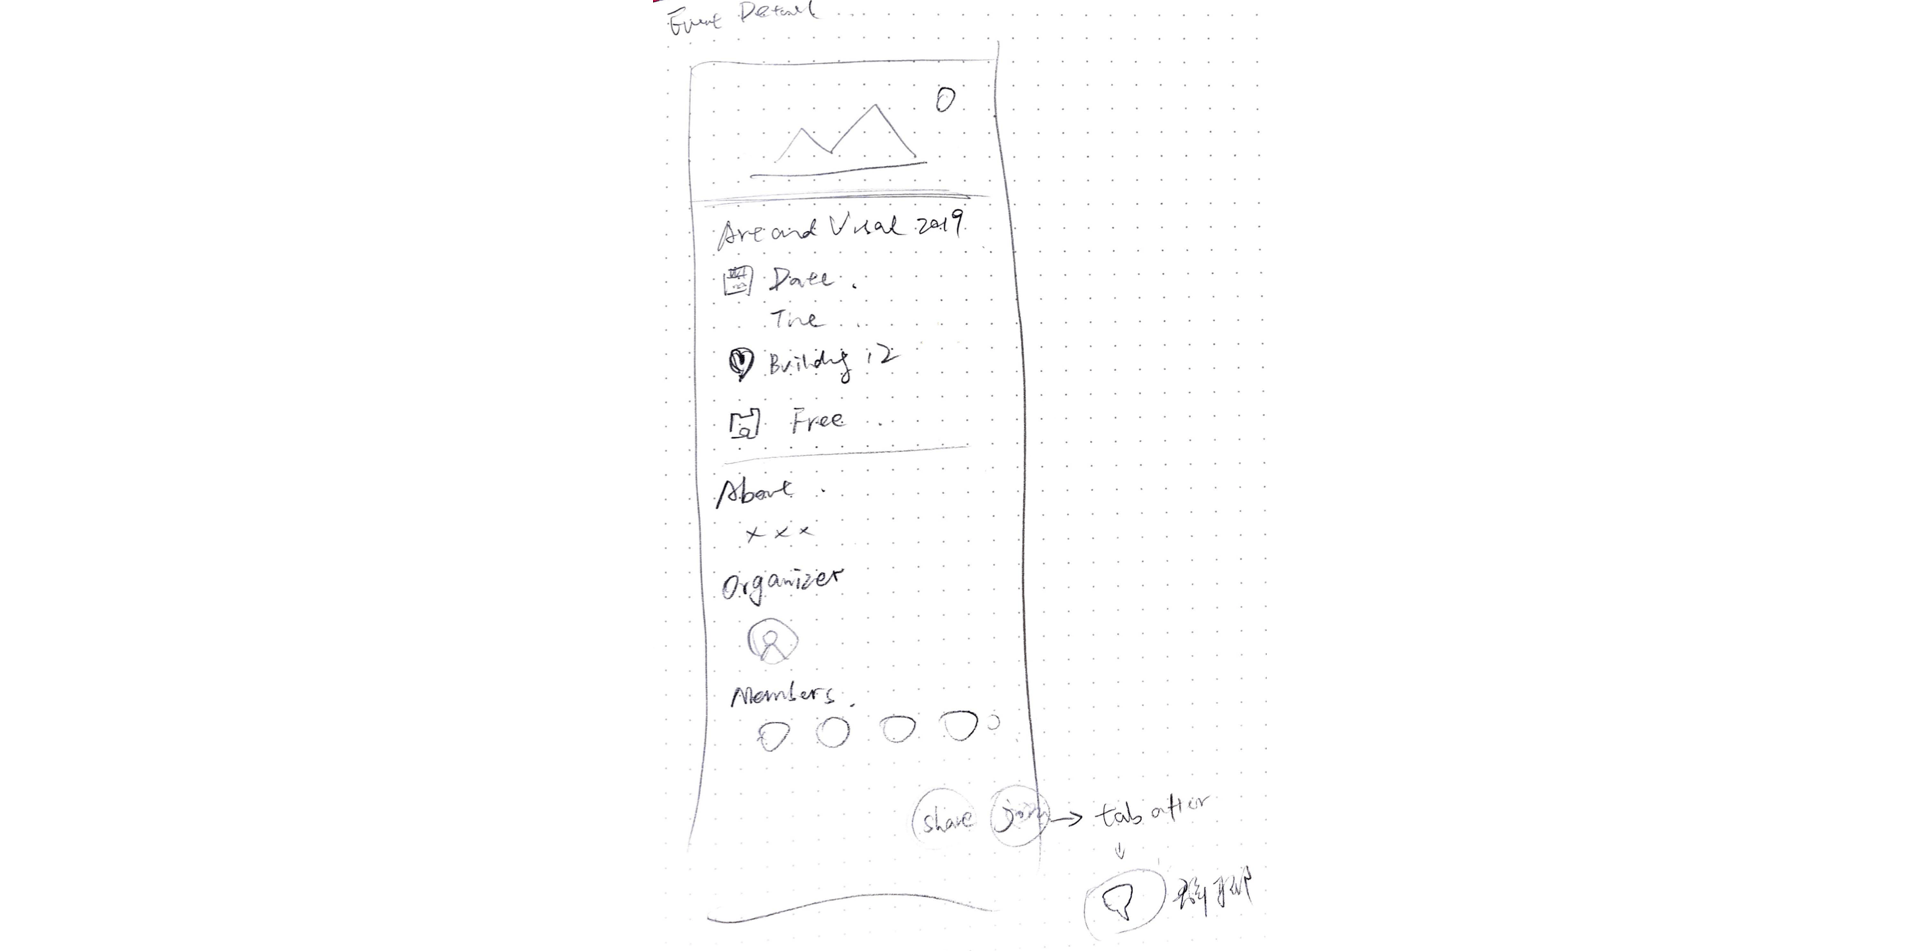 Event Detail ...
Art and Visual 2019
Date .
Time ...
Building 12
Free ...
About .
x x x
Organizer
Members .
share
join → tab after